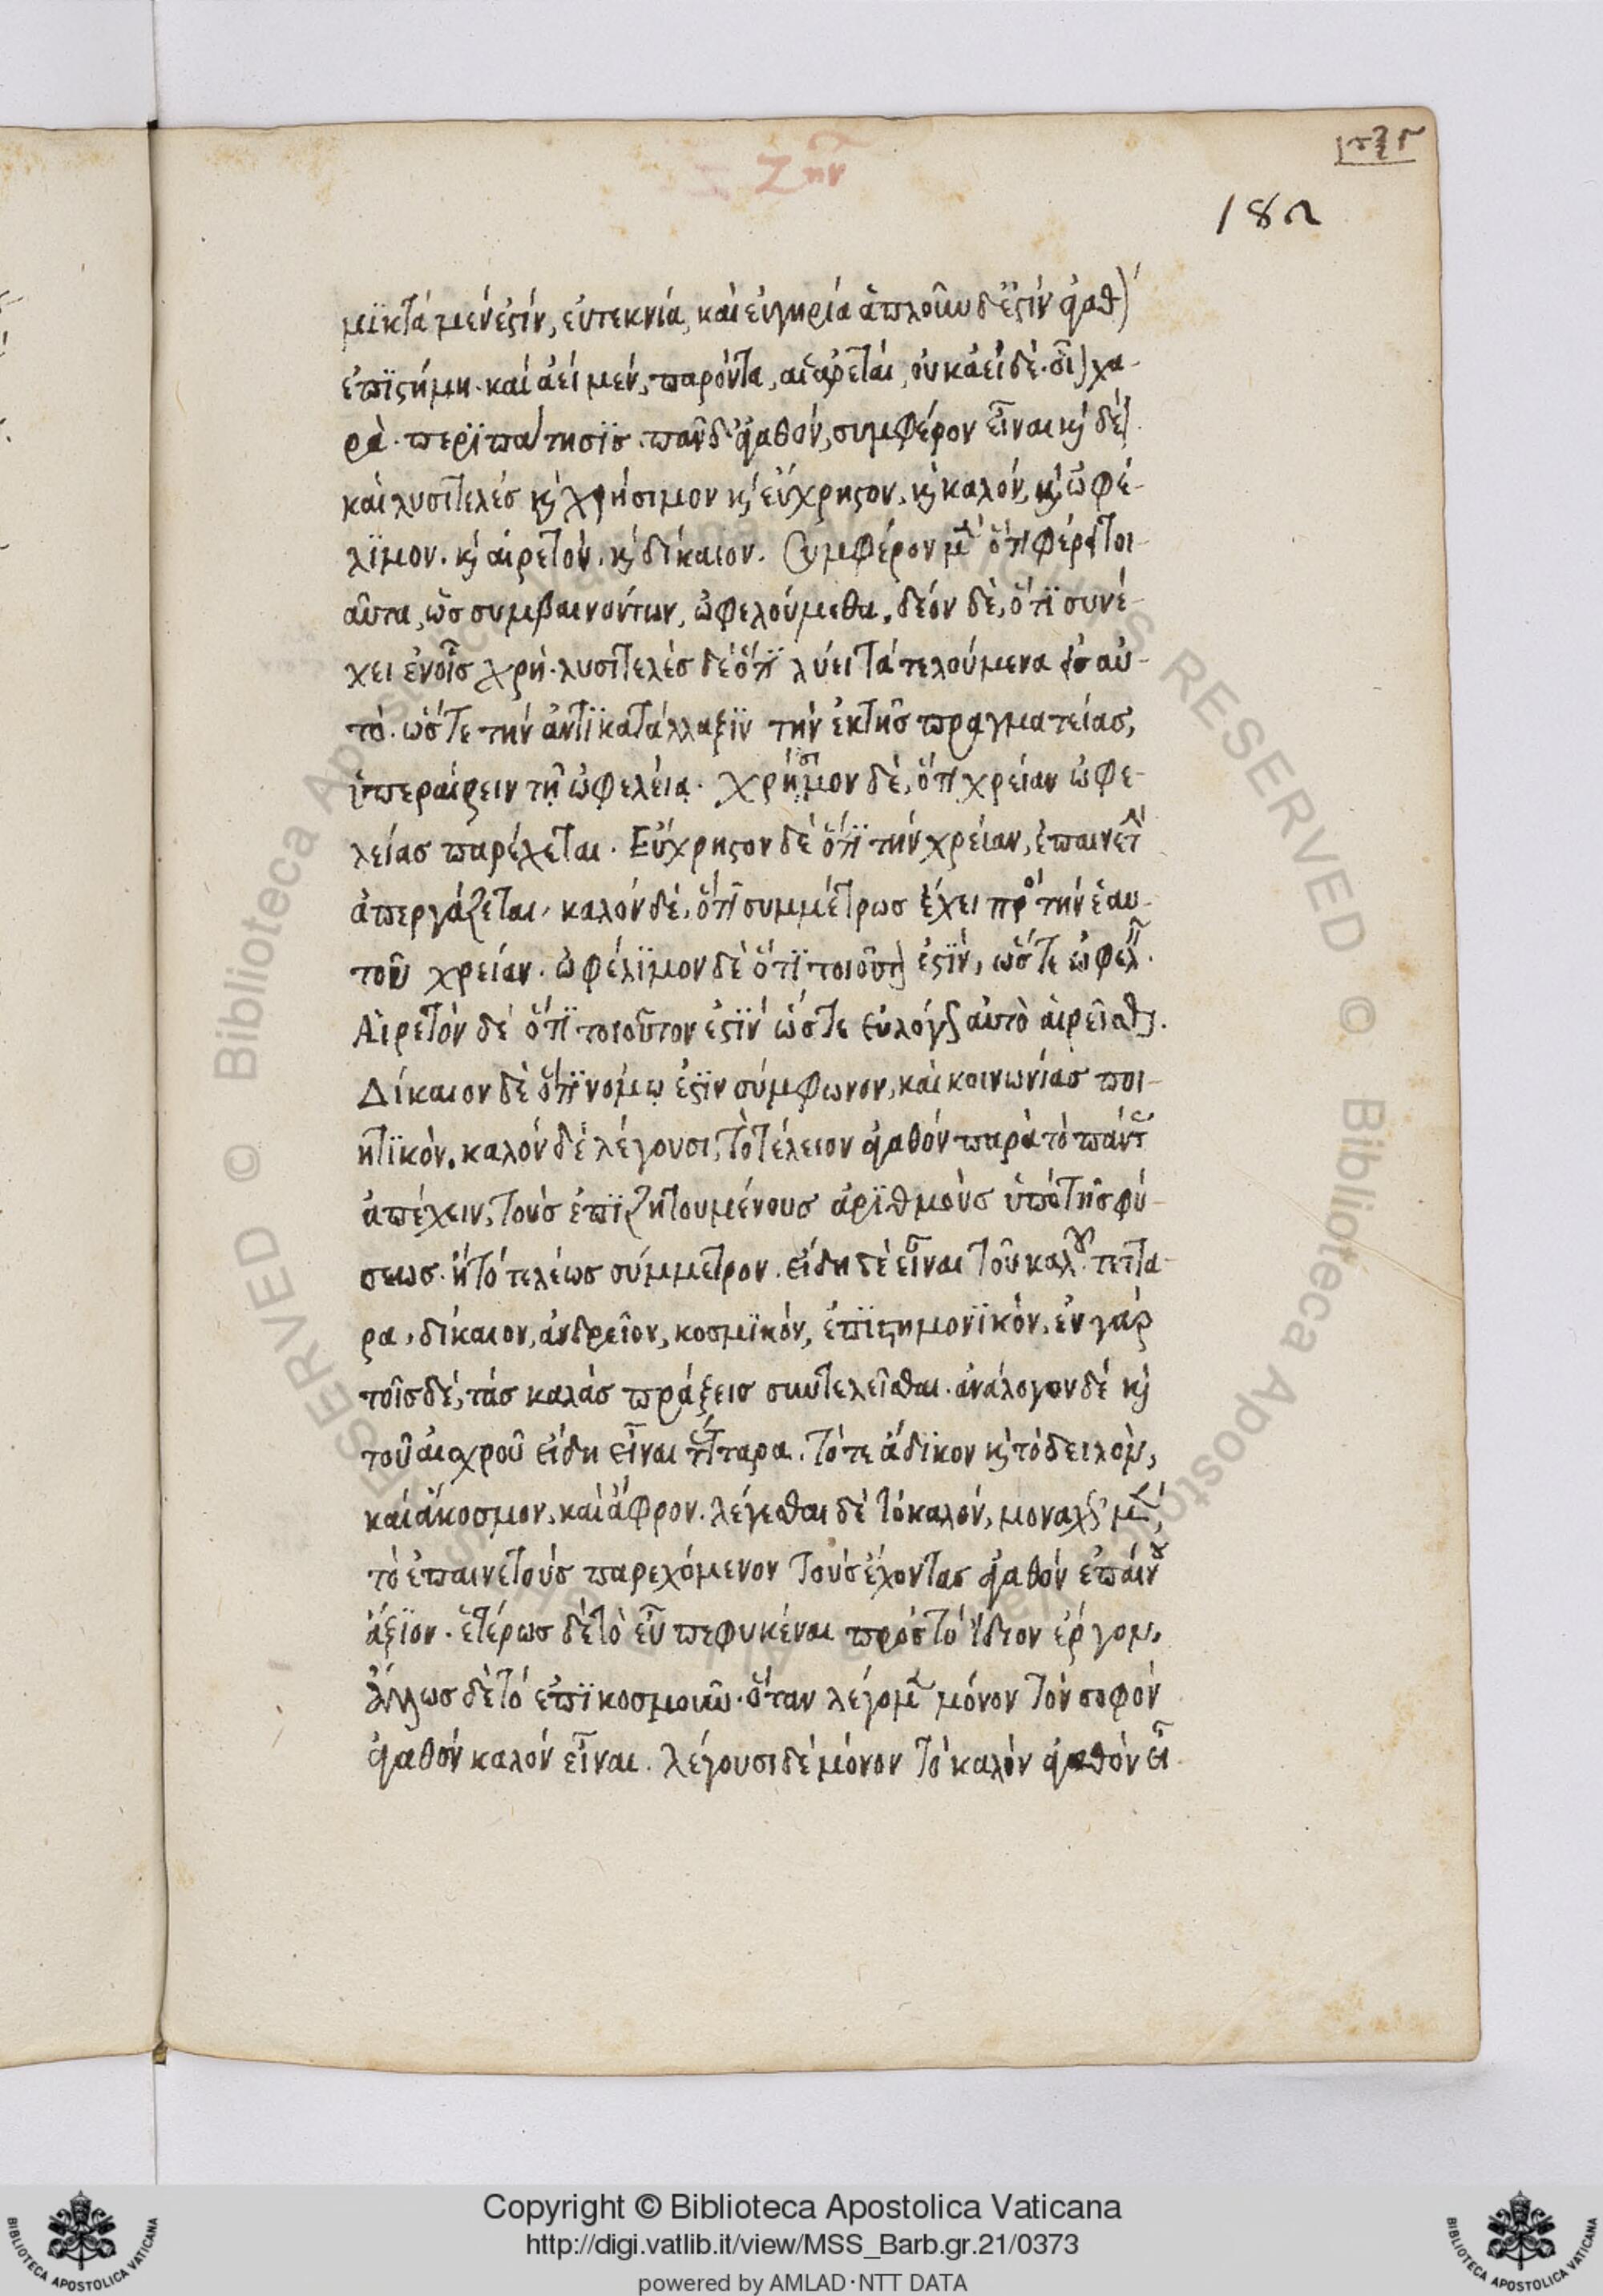 Ζήν
182
μϊκτά μέν ἐστίν, εὐτεκνία, και εὐγηρία ἁπλοῦν δ' ἐστίν ἀγαθ
ἐπϊστήμη. και ἀεί μέν, παρόντα, αἱ ἀρεταί, οὐκ ἀεί δέ. οἷ χα-
ρὰ. περϊπάτησϊς. πᾶν δ' ἀγαθόν, συμφέρον εἶναι κ δέ
και λυσιτελές κ χρήσιμον κ εὔχρηστον. κ καλόν, κ ὠφέ-
λϊμον. κ αἱρετόν. κ δίκαιον. Συμφέρον μ ὅτι φέρει τοι-
αῦτα, ὧς συμβαινόντων, ὠφελούμεθα. δέον δὲ, ὅτϊ συνέ-
χει ἐν οἷς χρή. λυσιτελές δέ ὅτϊ λύει τά τελούμενα εἰς αὐ-
τό. ὥστε τήν ἀντϊκατάλλαξϊν τήν ἐκ τῆς πραγματείας,
ὑπεραίρειν τῇ ὠφελείᾳ. χρήσιμον δέ, ὅτι χρείαν ὠφε-
λείας παρέχεται. Εὔχρηστον δέ ὅτϊ τήν χρείαν, ἐπαινετ
ἀπεργάζεται. καλόν δέ, ὅτϊ συμμέτρως ἔχει πρ τήν ἑαυ-
τοῦ χρείαν. ὠφέλϊμον δέ ὅτϊ τοιοῦτ ἐστϊν, ὥστε ὠφελ.
Αἱρετόν δέ ὅτϊ τοιοῦτον ἐστϊν ὥστε εὐλόγς αὐτό αἱρεῖσθ.
Δίκαιον δέ ὅτϊ νόμῳ ἐστϊν σύμφωνον, και κοινωνίας ποι-
ητϊκόν. καλόν δέ λέγουσι, τό τέλειον ἀγαθόν παρά τό πάντ
ἀπέχειν, τούς ἐπϊζητουμένους ἀρϊθμούς ὑπό τῆς φύ-
σεως. ἤ τό τελέως σύμμετρον. εἴδη δέ εἶναι τοῦ καλ τέττα-
ρα, δίκαιον, ἀνδρεῖον, κοσμϊκόν, ἐπϊστημονϊκόν. ἐν γάρ
τοῖσδέ, τάς καλάς πράξεις συντελεῖσθαι. ἀνάλογον δέ κ
τοῦ αἰσχροῦ εἴδη εἶναι τέτταρα. τό τε ἄδϊκον κ τό δειλόν,
καί ἄκοσμον, καί ἄφρον. λέγεσθαι δέ τό καλόν, μοναχς μ,
τό ἐπαινετούς παρεχόμενον τούς ἔχοντας ἀγαθόν ἐπαίν
ἄξϊον. ἑτέρως δέ τό εὖ πεφυκέναι πρός τό ἴδιον ἔργον,
ἄλλως δέ τό ἐπϊκοσμοῦν. ὅταν λέγομ μόνον τόν σοφόν
ἀγαθόν καλόν εἶναι. λέγουσι δέ μόνον τό καλόν ἀγαθόν εἶ
Copyright © Biblioteca Apostolica Vaticana
http://digi.vatlib.it/view/MSS_Barb.gr.21/0373
powered by AMLAD·NTT DATA